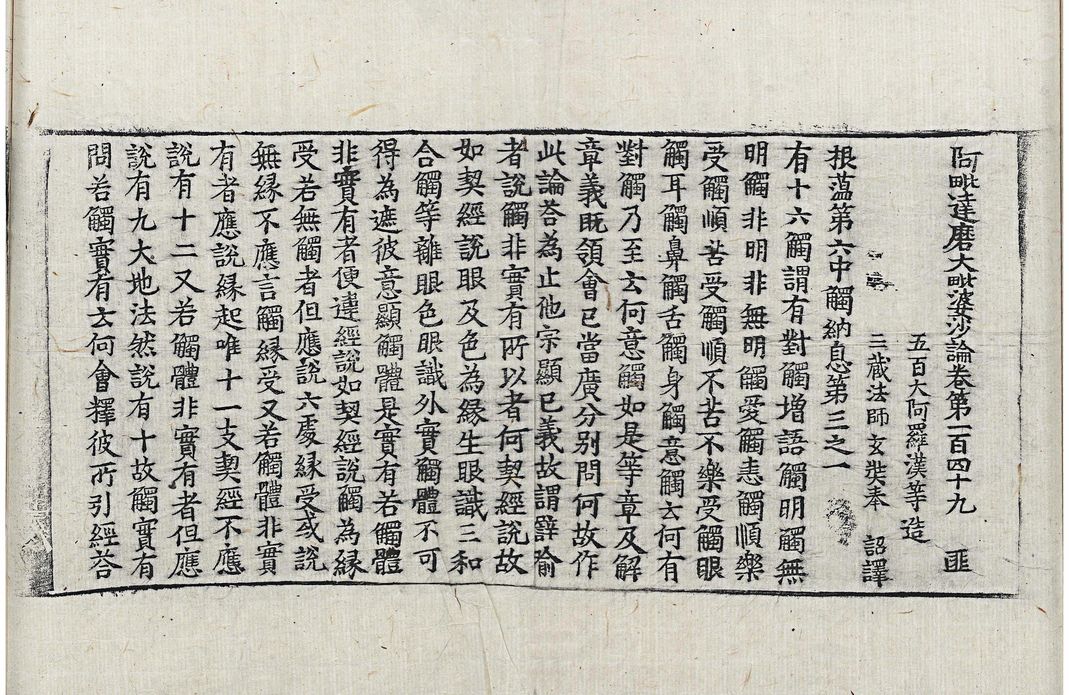 阿毗達磨大毗婆沙論卷第一百四十九 匪
五百大阿羅漢等 造
三藏法師玄奘奉 詔譯
根蕰第六中觸納息第三之一
有十六觸謂有對觸增語觸明觸無
明觸非明非無明觸愛觸恚觸順樂
受觸順苦受觸順不苦不樂受觸眼
觸耳觸鼻觸舌觸身觸意觸云何有
對觸乃至云何意觸如是等章及解
章義既領會已當廣分別問何故作
此論荅為止他宗顯己義故謂譬喻
者說觸非實有所以者何契經說故
如契經說眼及色為緣生眼識三和
合觸等離眼色眼識外實觸體不可
得為遮彼意顯觸體是實有若觸體
非實有者便違經說如契經說觸為緣
受若無觸者但應說六處緣受或說
無緣不應言觸緣受又若觸體非實
有者應說緣起唯十一支契經不應
說有十二又若觸體非實有者但應
說有九大地法然說有十故觸實有
問若觸實有云何會釋彼所引經荅